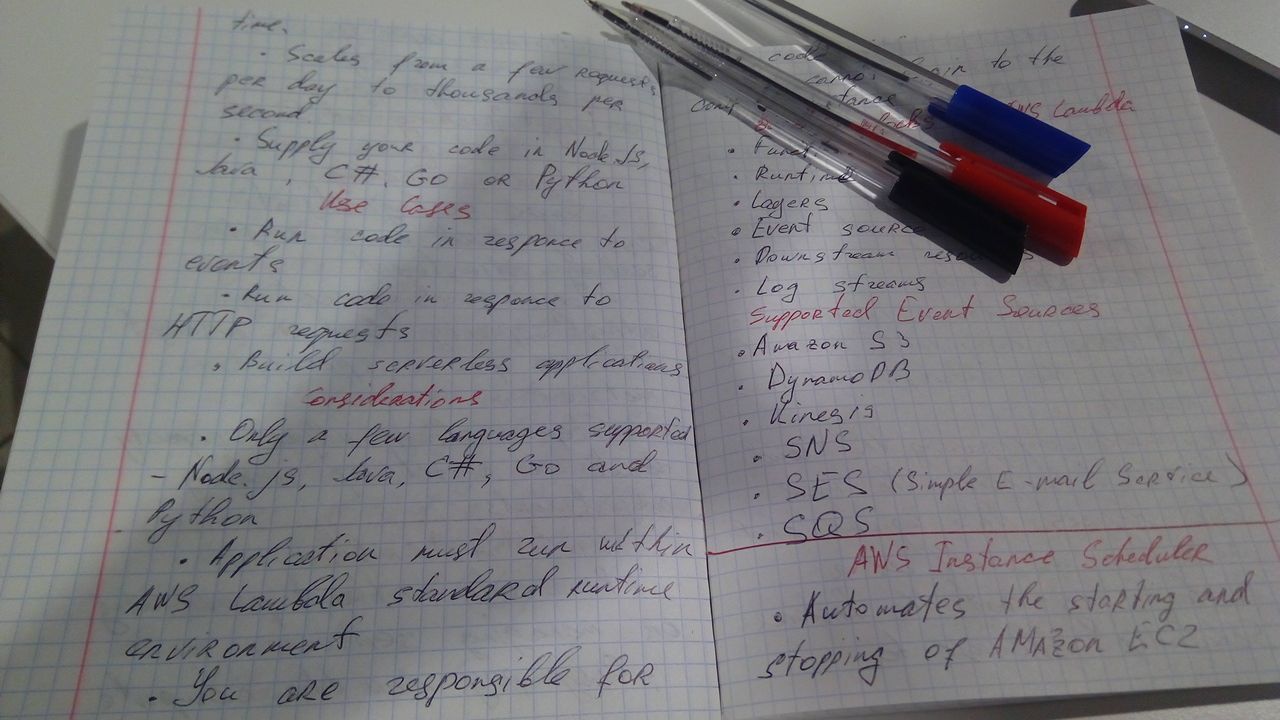 time.
• Scales from a few requests
per day to thousands per
second
• Supply your code in Node.js,
Java, C#, GO or Python
Use Cases
• Run code in responce to
events
• Run code in responce to
HTTP requests
• Build serverless applications
Considerations
• Only a few languages supported
- Node.js, Java, C#, GO and
Python
• Application must run within
AWS Lambda standard runtime
environment
• You are responsible for
code
to the
AWS Lambda
•
• Runtime
• Layers
• Event source
• Downstream
• Log streams
Supported Event Sources
• Amazon S3
• DynamoDB
• Kinesis
• SNS
• SES (Simple E-mail Service)
• SQS
AWS Instance Scheduler
• Automates the starting and
stopping of AMAZON EC2